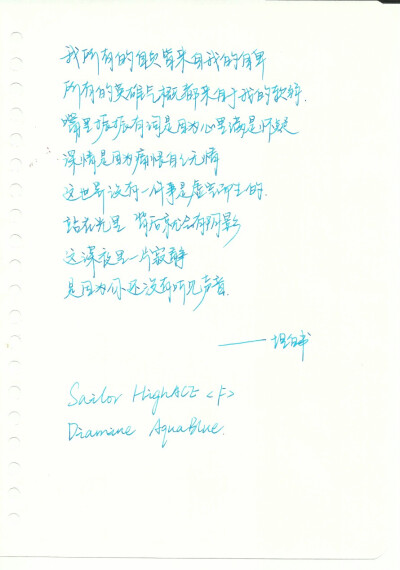 我所有的自负皆来自我的自卑
所有的英雄气概都来自于我的软弱.
嘴里振振有词是因为心里满是怀疑
深情是因为痛恨自己无情
这世界没有一件事是虚空而生的.
站在光里 背后就会有阴影
这深夜里一片寂静
是因为你还没有听见声音.
——坦白书
Sailor HighACE <F>
Diamine AquaBlue.